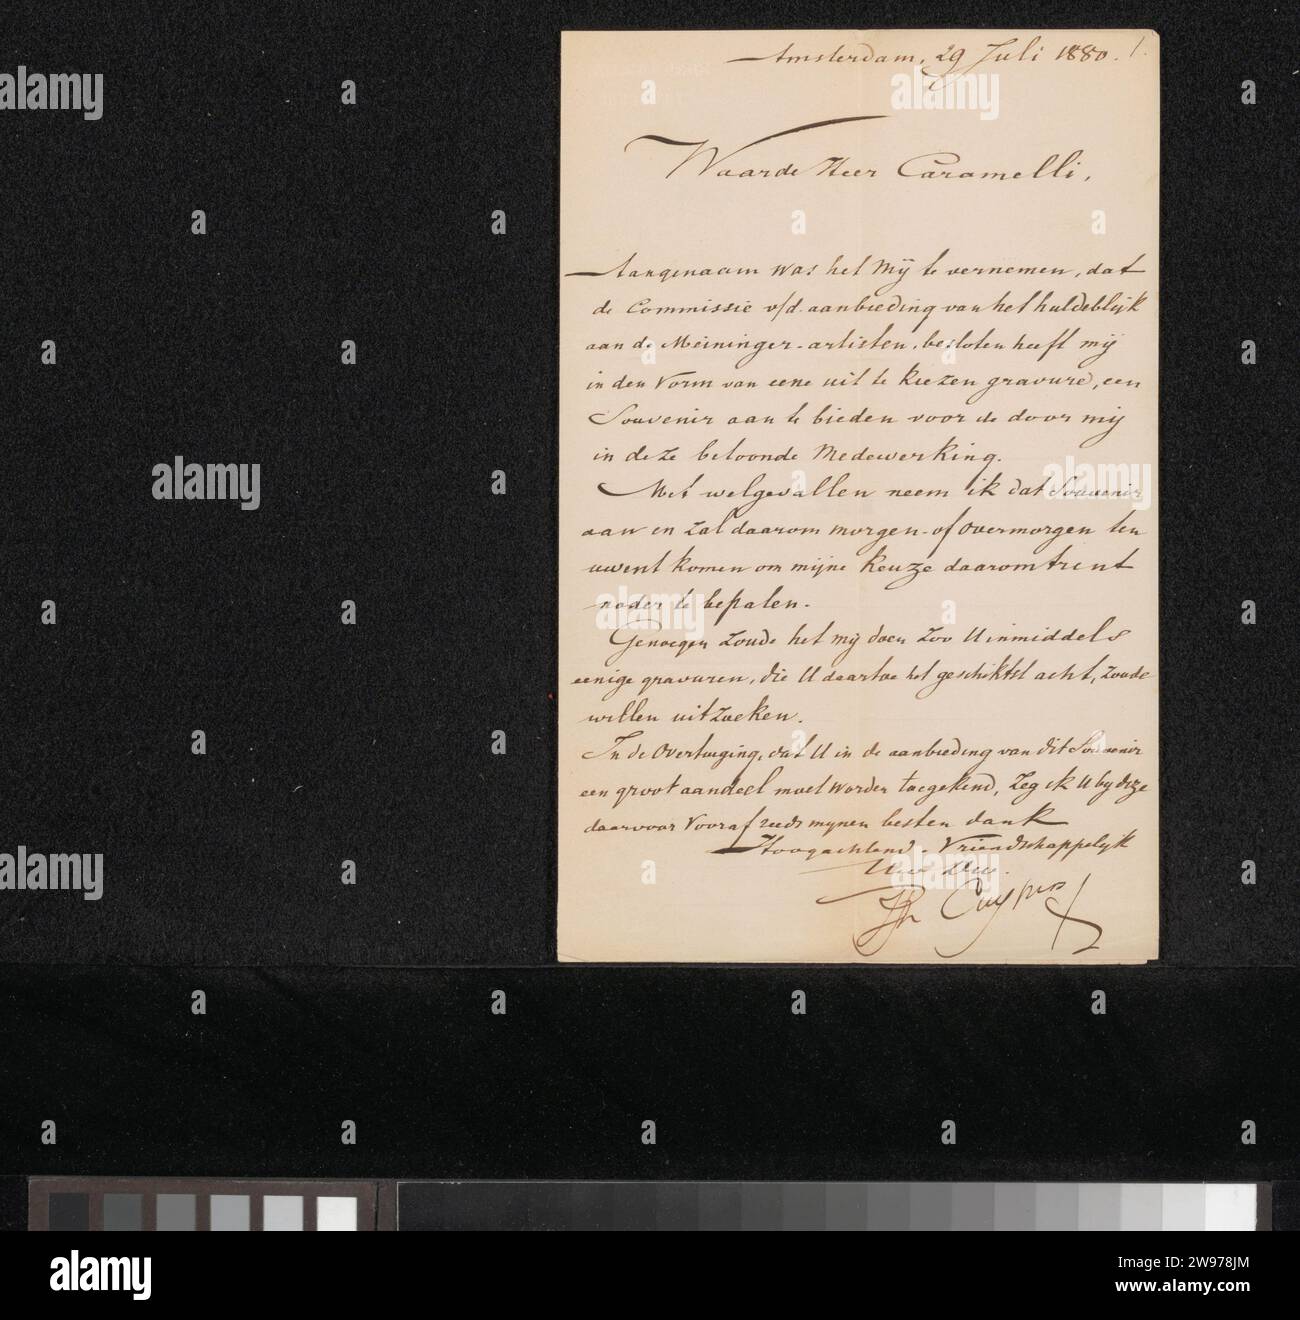 Amsterdam, 29 Juli 1880.
Waarde Heer Caramelli,
Aangenaam was het mij te vernemen, dat
de Commissie v/d. aanbieding van het huldeblijk
aan de Meininger-artisten, besloten heeft mij
in den Vorm van eene uit te kiezen gravure, een
Souvenir aan te bieden voor de door mij
in deze betoonde Medewerking.
Met welgevallen neem ik dat Souvenir
aan en zal daarom morgen of overmorgen ten
uwent komen om mijne keuze daaromtrent
nader te bepalen.
Genoegen zoude het mij doen zoo U inmiddels
eenige gravuren, die U daartoe het geschiktst acht, zoude
willen uitzoeken.
In de Overtuiging, dat U in de aanbieding van dit Souvenir
een groot aandeel moet worden toegekend, zeg ik U by deze
daarvoor vooraf reeds mynen besten dank
Hoogachtend. Vriendschappelijk
Uw Dw.
Cuypers
alamy
Image ID: 2W978JM
www.alamy.com